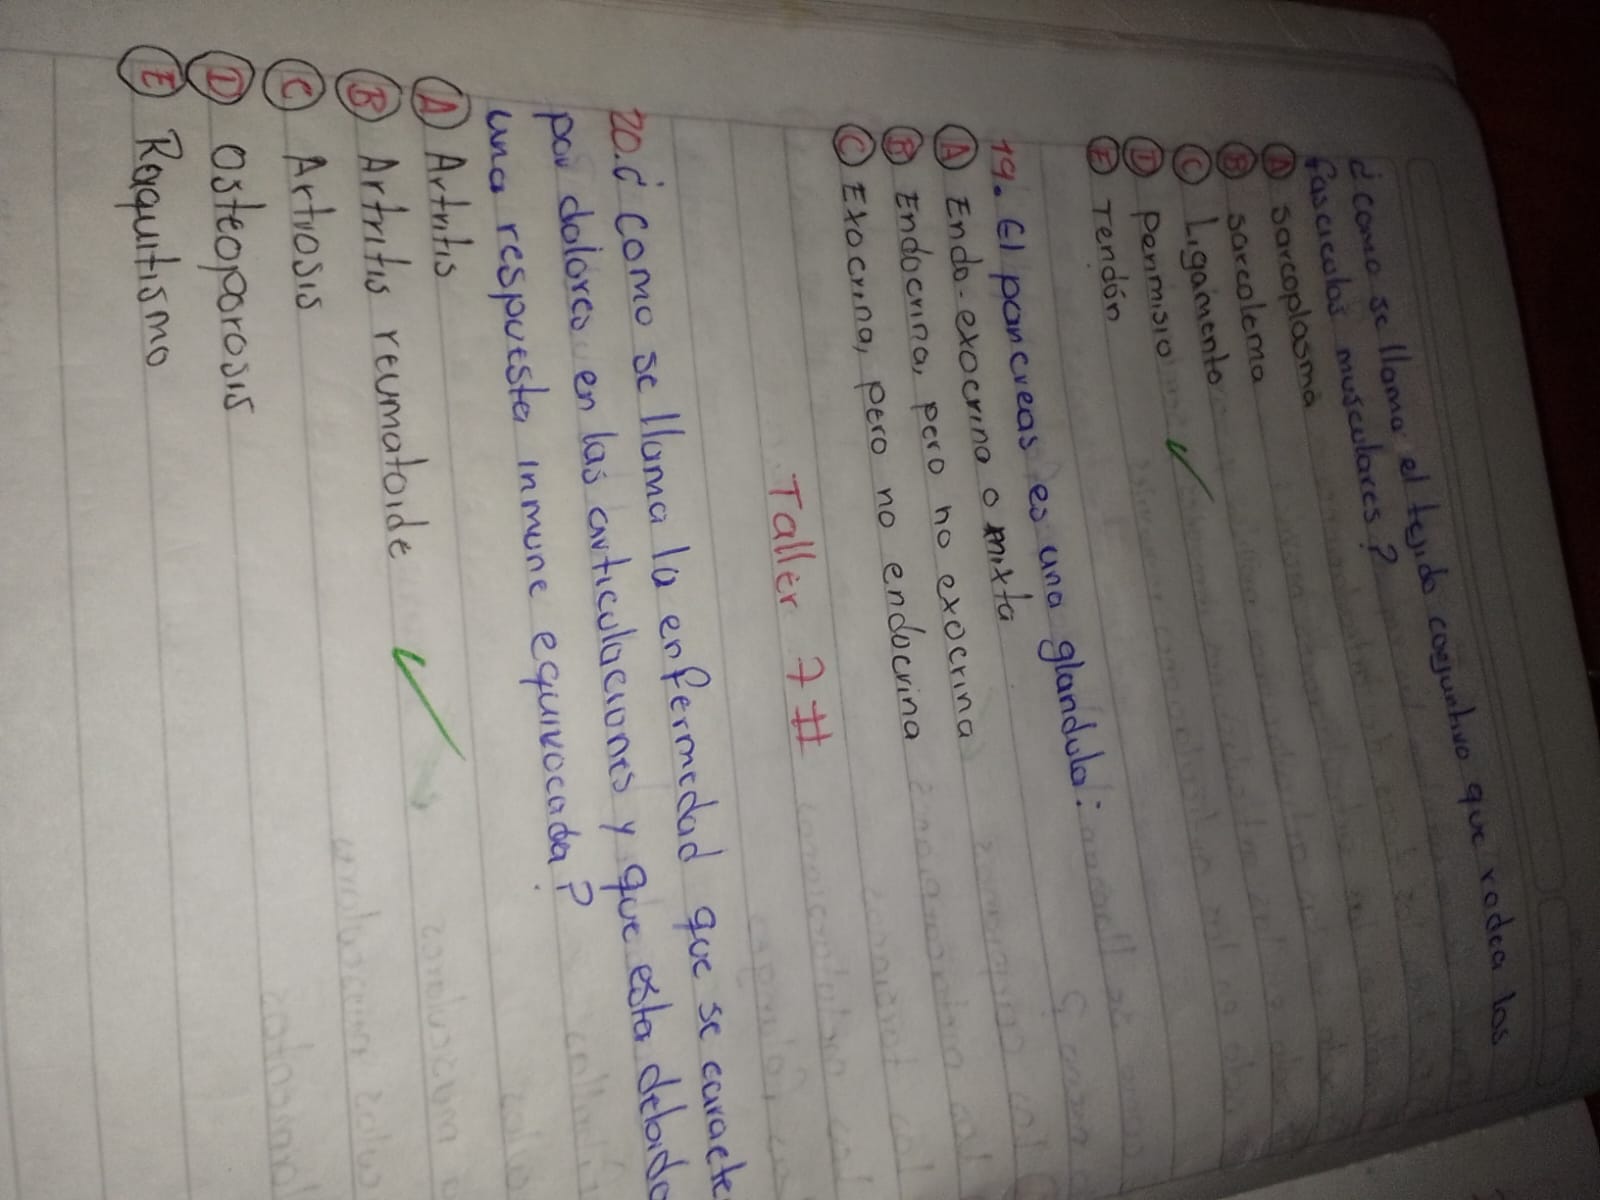 ¿como se llama el tejido conjuntivo que rodea las
fascículos musculares?
A sarcoplasma
B sarcolema
C Ligamento
D Perimisio
E Tendón
19. El pancreas es una glandula:
A Endo-exocrina o mixta
B Endocrina, pero no exocrina
C Exocrina, pero no endocrina
Taller 7 #
20. ¿Como se llama la enfermedad que se caracte
por dolores en las articulaciones y que esta debido
una respuesta inmune equivocada?
A Artritis
B Artritis reumatoide
C Artrosis
D Osteoporosis
E Raquitismo